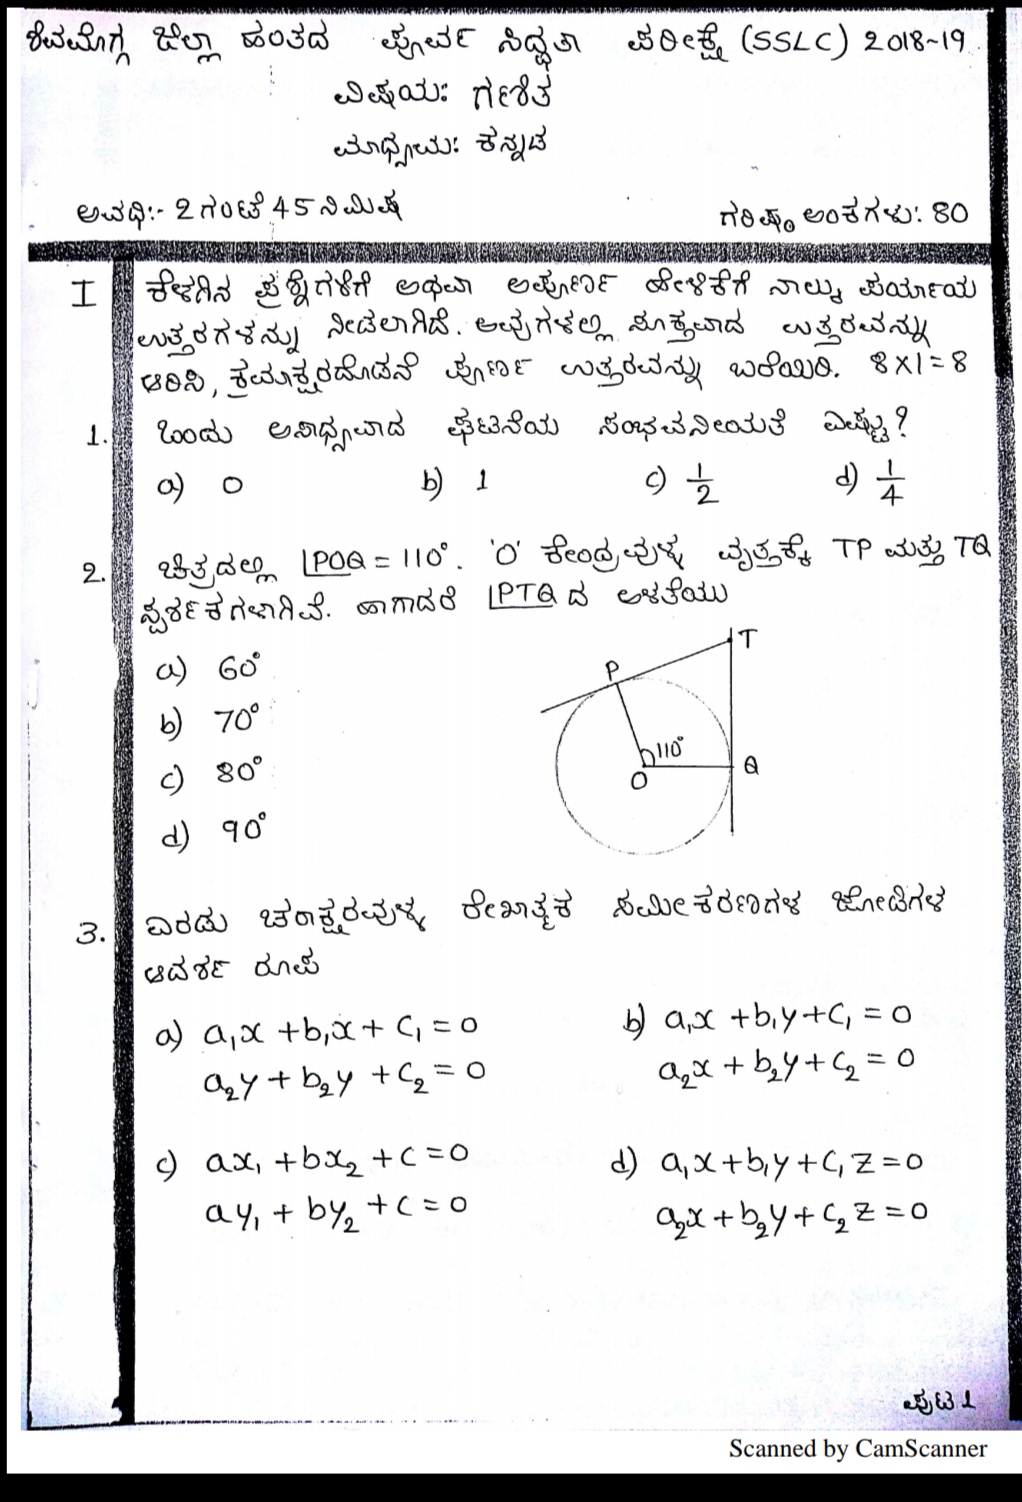 ಶಿವಮೊಗ್ಗ ಜಿಲ್ಲಾ ಹಂತದ ಪೂರ್ವ ಸಿದ್ಧತಾ ಪರೀಕ್ಷೆ (SSLC) 2018-19
ವಿಷಯ: ಗಣಿತ
ಮಾಧ್ಯಮ: ಕನ್ನಡ
ಅವಧಿ:- 2 ಗಂಟೆ 45 ನಿಮಿಷ ಗರಿಷ್ಠ ಅಂಕಗಳು: 80
I ಕೆಳಗಿನ ಪ್ರಶ್ನೆಗಳಿಗೆ ಅಥವಾ ಅಪೂರ್ಣ ಹೇಳಿಕೆಗೆ ನಾಲ್ಕು ಪರ್ಯಾಯ
ಉತ್ತರಗಳನ್ನು ನೀಡಲಾಗಿದೆ. ಅವುಗಳಲ್ಲಿ ಸೂಕ್ತವಾದ ಉತ್ತರವನ್ನು
ಆರಿಸಿ, ಕ್ರಮಾಕ್ಷರದೊಡನೆ ಪೂರ್ಣ ಉತ್ತರವನ್ನು ಬರೆಯಿರಿ. 8×1=8
1. ಒಂದು ಅಸಾಧ್ಯವಾದ ಘಟನೆಯ ಸಂಭವನೀಯತೆ ಎಷ್ಟು?
a) 0 b) 1 c) 1/2 d) 1/4
2. ಚಿತ್ರದಲ್ಲಿ ∠POQ = 110°. 'O' ಕೇಂದ್ರವುಳ್ಳ ವೃತ್ತಕ್ಕೆ TP ಮತ್ತು TQ
ಸ್ಪರ್ಶಕಗಳಾಗಿವೆ. ಹಾಗಾದರೆ ∠PTQ ದ ಅಳತೆಯು
a) 60°
b) 70°
c) 80°
d) 90°
T
P
110°
O
Q
3. ಎರಡು ಚರಾಕ್ಷರವುಳ್ಳ ರೇಖಾತ್ಮಕ ಸಮೀಕರಣಗಳ ಜೋಡಿಗಳ
ಆದರ್ಶ ರೂಪ
a) a₁x + b₁x + C₁ = 0 b) a₁x + b₁y + C₁ = 0
a₂y + b₂y + C₂ = 0 a₂x + b₂y + C₂ = 0
c) ax₁ + bx₂ + C = 0 d) a₁x + b₁y + C₁z = 0
ay₁ + by₂ + C = 0 a₂x + b₂y + C₂z = 0
ಪುಟ 1
Scanned by CamScanner